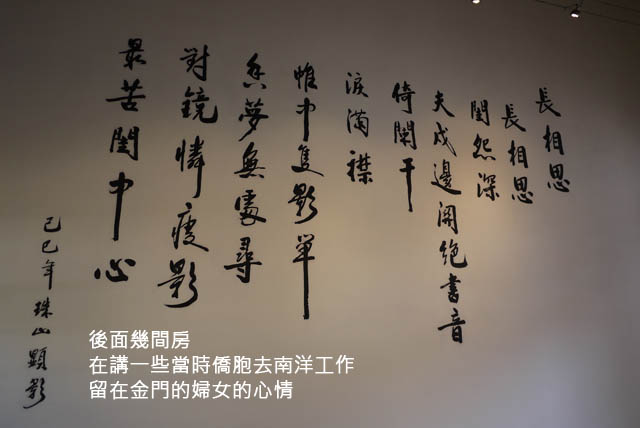 長相思
長相思
閨怨深
夫戍邊關絕書音
倚闌干
淚滿襟
帷中隻影單
香夢無處尋
對鏡憐瘦影
最苦閨中心
己巳年珠山顯影
後面幾間房
在講一些當時僑胞去南洋工作
留在金門的婦女的心情